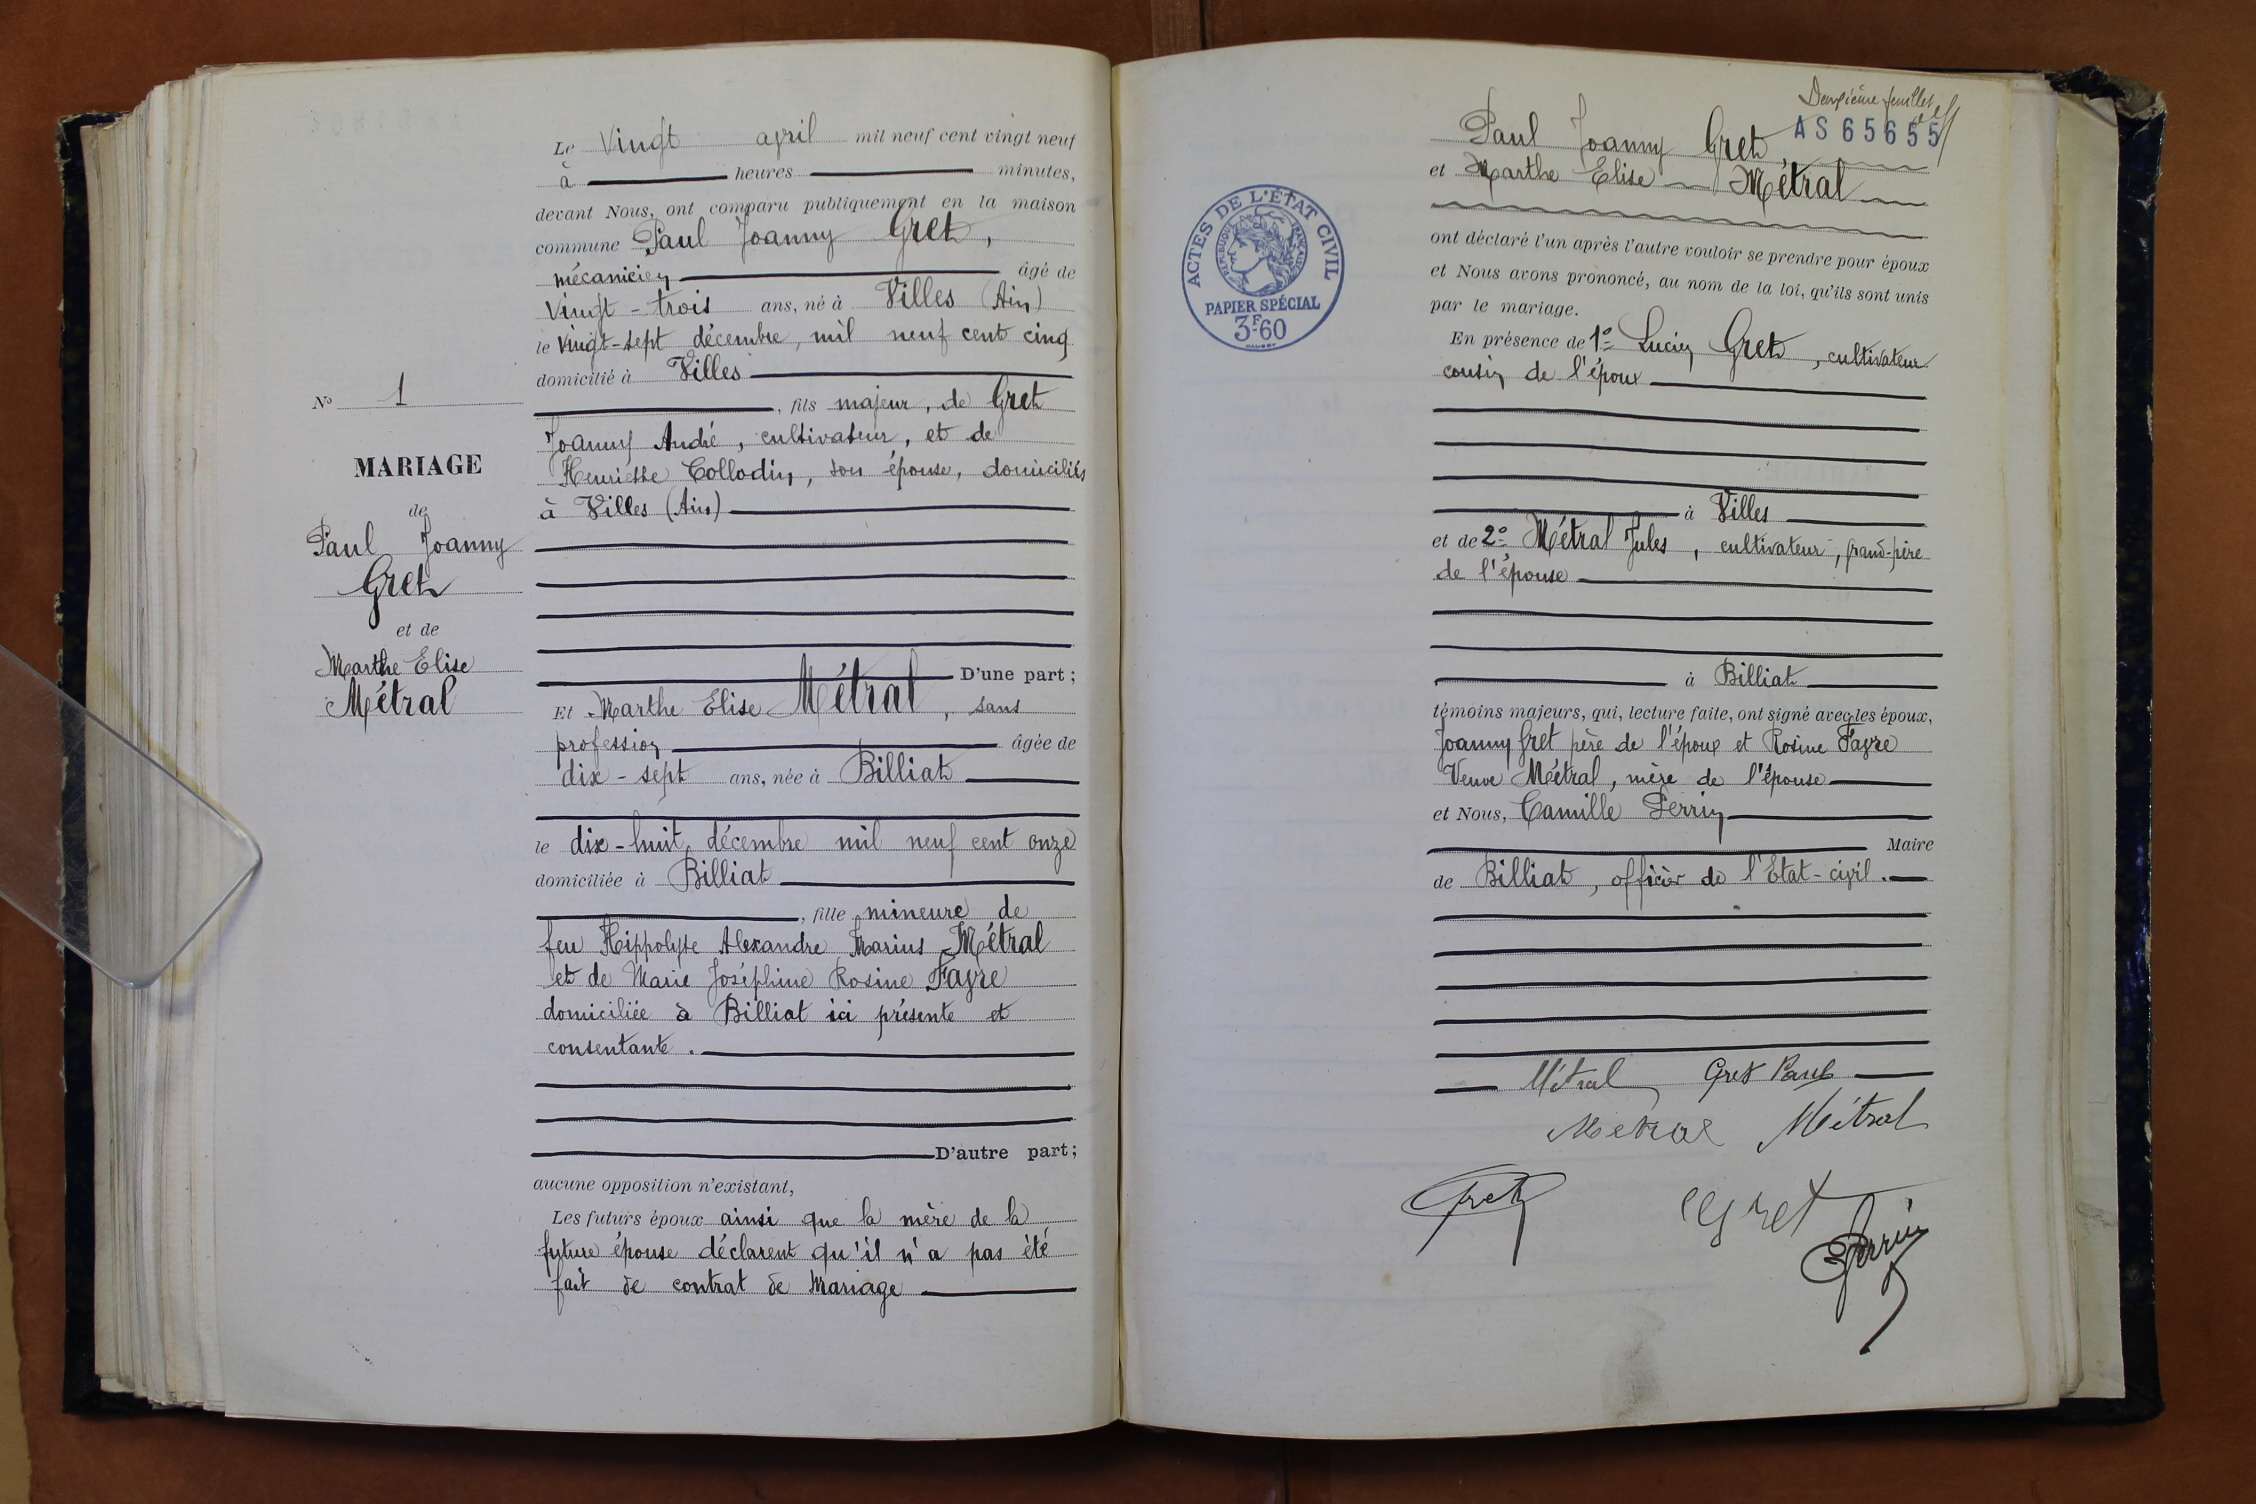 Le Vingt avril mil neuf cent vingt neuf
à heures minutes,
devant Nous, ont comparu publiquement en la maison
commune Paul Joanny Gret,
mécanicien âgé de
Vingt-trois ans, né à Villes (Ain)
le Vingt-sept décembre, mil neuf cent cinq
domicilié à Villes
, fils majeur, de Gret
Joanny André, cultivateur, et de
Henriette Collodin, son épouse, domiciliés
à Villes (Ain)
D'une part;
Et Marthe Elise Métral, sans
profession âgée de
dix-sept ans, née à Billiat
le dix-huit décembre mil neuf cent onze
domiciliée à Billiat
, fille mineure de
feu Hippolyte Alexandre Marius Métral
et de Marie Joséphine Rosine Favre
domiciliée à Billiat ici présente et
consentante.
D'autre part;
aucune opposition n'existant,
Les futurs époux ainsi que la mère de la
future épouse déclarent qu'il n'a pas été
fait de contrat de Mariage
No 1
MARIAGE
de
Paul Joanny
Gret
et de
Marthe Elise
Métral
Deuxième feuillet
AS 65655
Paul Joanny Gret,
et Marthe Elise Métral
ont déclaré l'un après l'autre vouloir se prendre pour époux
et Nous avons prononcé, au nom de la loi, qu'ils sont unis
par le mariage.
En présence de 1o Lucien Gret, cultivateur
cousin de l'époux
à Villes
et de 2o Métral Jules, cultivateur, grand-père
de l'épouse
à Billiat
témoins majeurs, qui, lecture faite, ont signé avec les époux,
Joanny Gret père de l'époux et Rosine Favre
Veuve Métral, mère de l'épouse
et Nous, Camille Perrin
Maire
de Billiat, officier de l'Etat-civil.
Métral Gret Paul
Métral Métral
Gret Gret
Perrin
ACTES DE L'ÉTAT CIVIL
RÉPUBLIQUE FRANÇAISE
PAPIER SPÉCIAL
3F.60